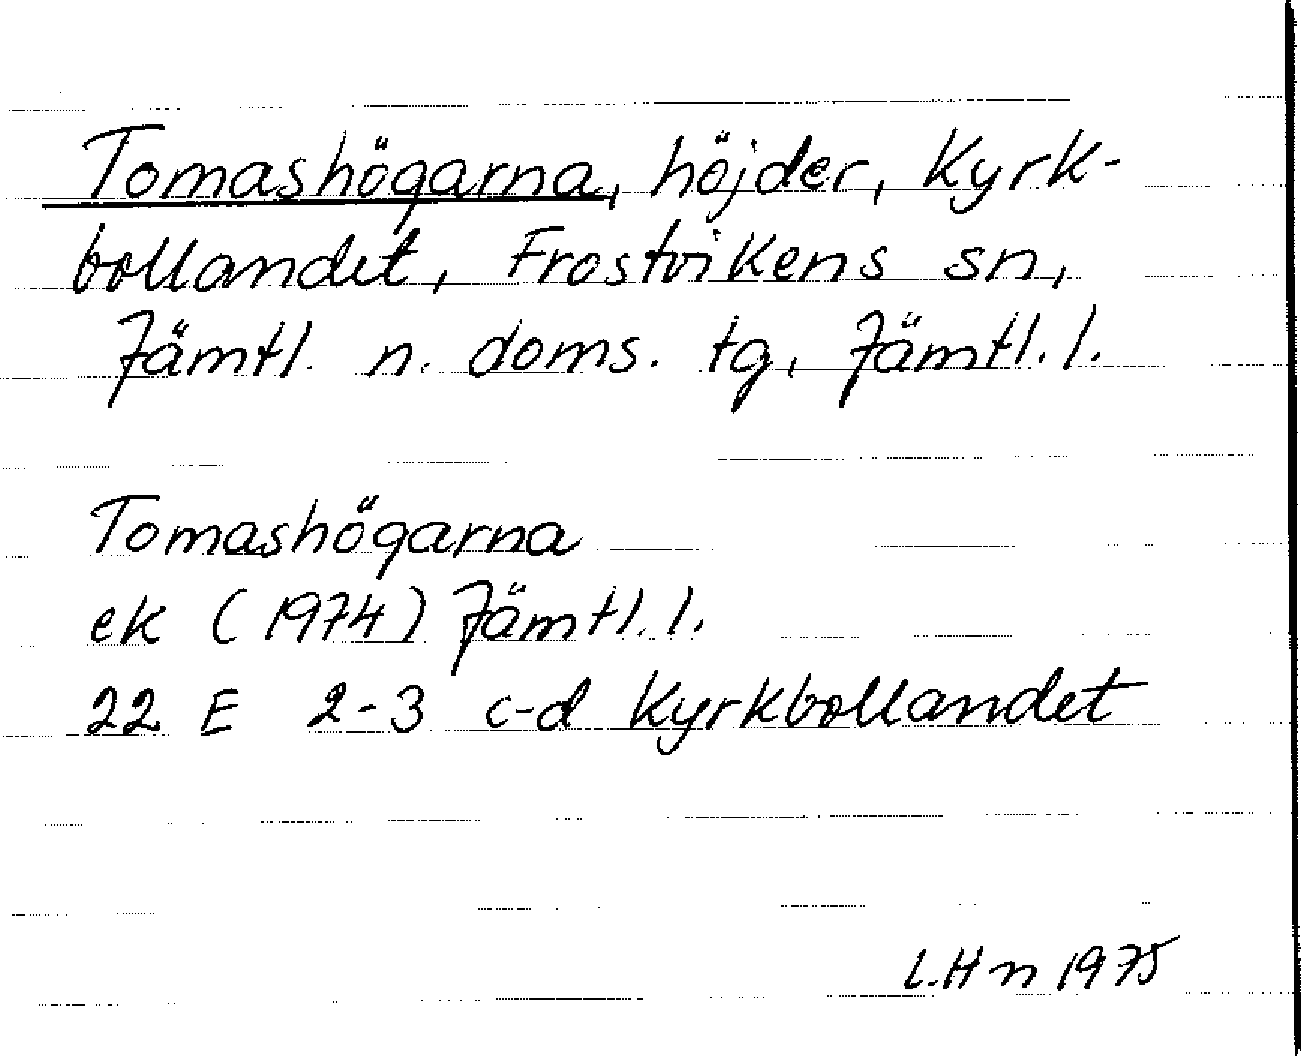 Tomashögarna, höjder, Kyrk-
bollandet, Frostvikens sn,
Jämtl. n. doms. tg, Jämtl. l.
Tomashögarna
ek (1974) Jämtl. l.
22 E 2-3 c-d Kyrkbollandet
L.Hn 1975